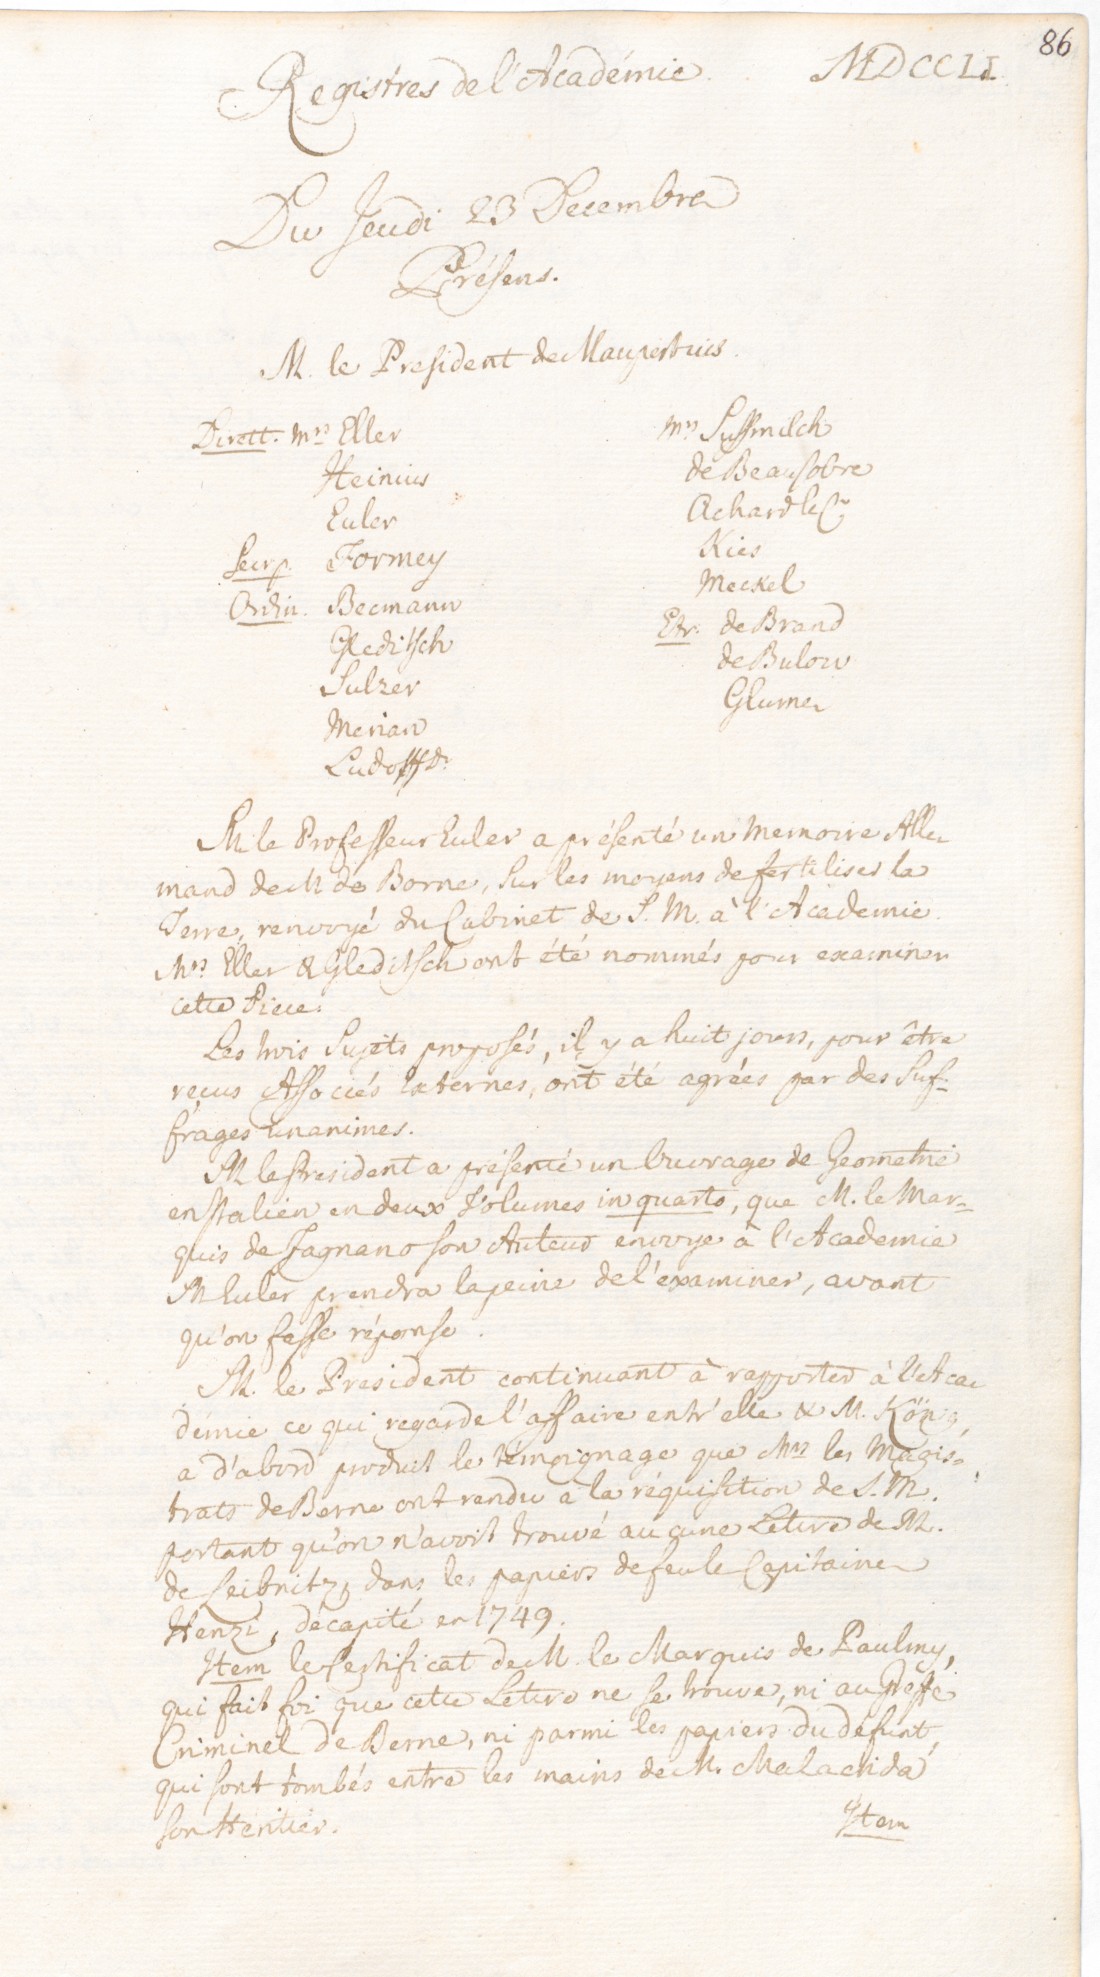 86
Registres de l'Académie. MDCCLI.
Du Jeudi 23 Decembre
Présens.
M. le President de Maupertuis.
Direct. Mrs Eller
Heinius
Euler
Secr. p. Formey
Ordin. Becmann
Gleditsch
Sulzer
Merian
Ludolff Dr
Mrs Sussmilch
de Beausobre
Achard le Cr
Kies
Meckel
Etr. de Brand
de Bulow
Glume
M. le Professeur Euler a présenté un Memoire Alle-
mand de M de Borne, sur les moyens de fertiliser la
Terre, renvoyé du Cabinet de S. M. à l'Academie.
Mrs Eller & Gleditsch ont été nommés pour examiner
cette Piece.
Les trois Sujets proposés, il y a huit jours, pour être
reçus Associés Externes, ont été agréés par des Suf-
frages unanimes.
M le President a présenté un Ouvrage de Geometrie
en Italien en deux Volumes in quarto, que M. le Mar-
quis de Fagnano son Auteur envoye à l'Academie
M Euler prendra la peine de l'examiner, avant
qu'on fasse réponse.
M. le President continuant à rapporter à l'Aca-
démie ce qui regarde l'affaire entr'elle & M. König,
a d'abord produit le témoignage que Mrs les Magis-
trats de Berne ont rendu a la réquisition de S. M.
portant qu'on n'avoit trouvé aucune Lettre de M.
de Leibnitz, dans les papiers de feu le Capitaine
Henzi, décapité en 1749.
Item le Certificat de M. le Marquis de Paulmy,
qui fait foi que cette Lettre ne se trouve, ni au Greffe
Criminel de Berne, ni parmi les papiers du défunt,
qui sont tombés entre les mains de M. Malacrida
son Héritier.
Item